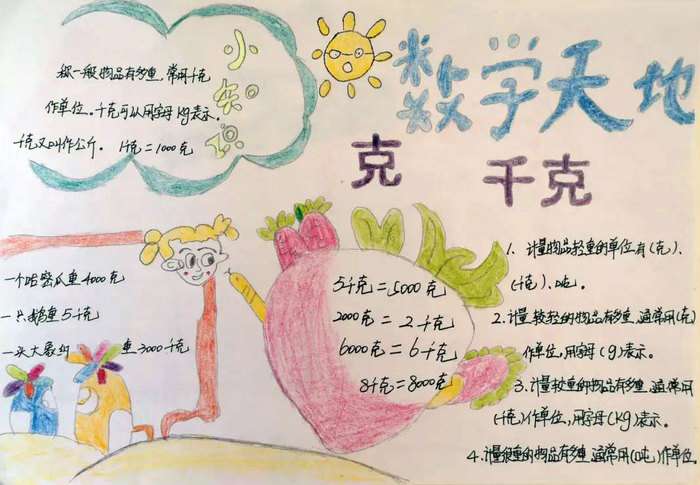 数学天地
克 千克
小知识
称一般物品有多重，常用千克
作单位。千克可以用字母kg表示。
千克又叫作公斤。 1千克=1000克
一个哈密瓜重4000克
一只鹅重5千克
一头大象约 重3000千克
5千克=5000克
2000克=2千克
6000克=6千克
8千克=8000克
1、计量物品轻重的单位有(克)、
(千克)、吨。
2.计量较轻的物品有多重，通常用(克)
作单位，用字母(g)表示。
3.计量较重的物品有多重，通常用
(千克)作单位，用字母(kg)表示。
4.计量很重的物品有多重，通常用(吨)作单位。